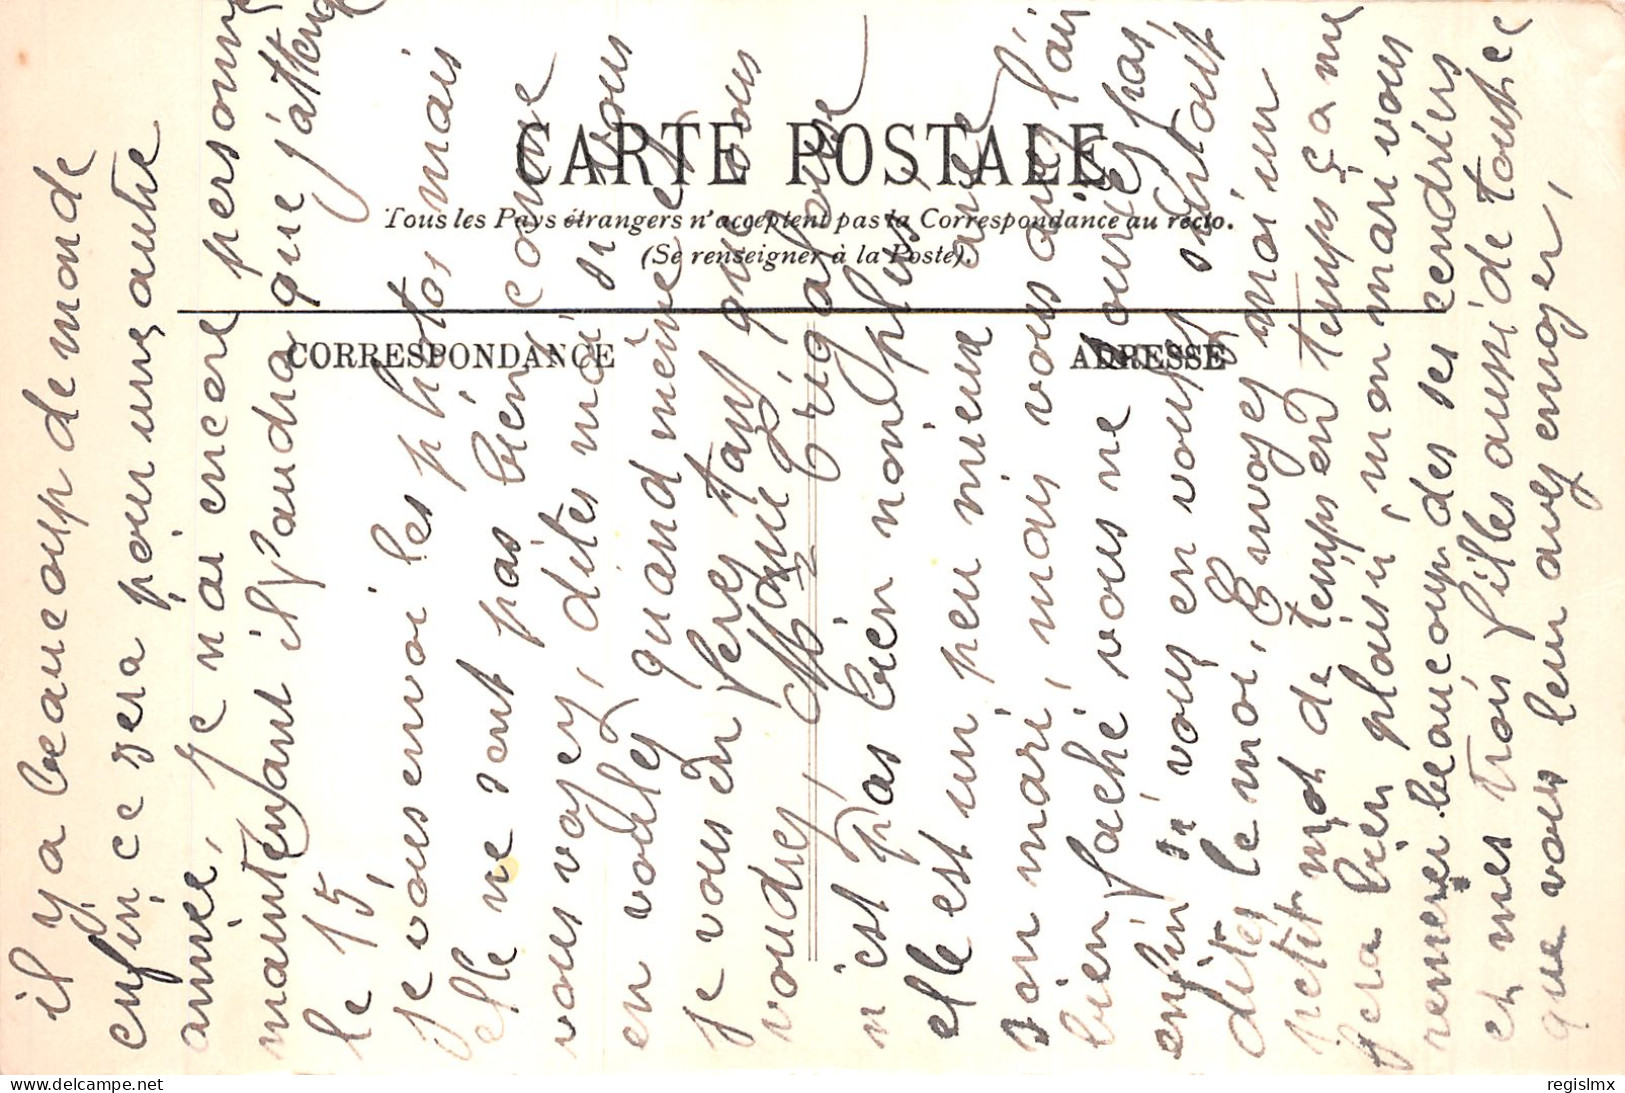 CARTE POSTALE
Tous les Pays étrangers n'acceptent pas la Correspondance au recto.
(Se renseigner à la Poste).
CORRESPONDANCE
ADRESSE
il y a beaucoup de monde
enfin ce sera pour une autre
année, je n'ai encore personne
maintenant il faudra que j'attende
le 15,
je vous envoi les photos mais
elle ne sont pas bien comme
vous voyez, dites moi si vous
en voulez quand même et
je vous en ferez tant que vous
voudrez,
n'est pas bien non plus,
elle est un peu mieux avec
son mari, mais vous avez l'air
bien faché vous ne pas,
enfin si vous en voulez surtout
dites le moi, Envoyez moi un
petit mot de temps en temps ça me
fera bien plaisir, mon mari vous
remerci beaucoup des ses cendriers
et mes trois filles aussi de
que vous leur avez envoyer,
delcampe.net
regislmx